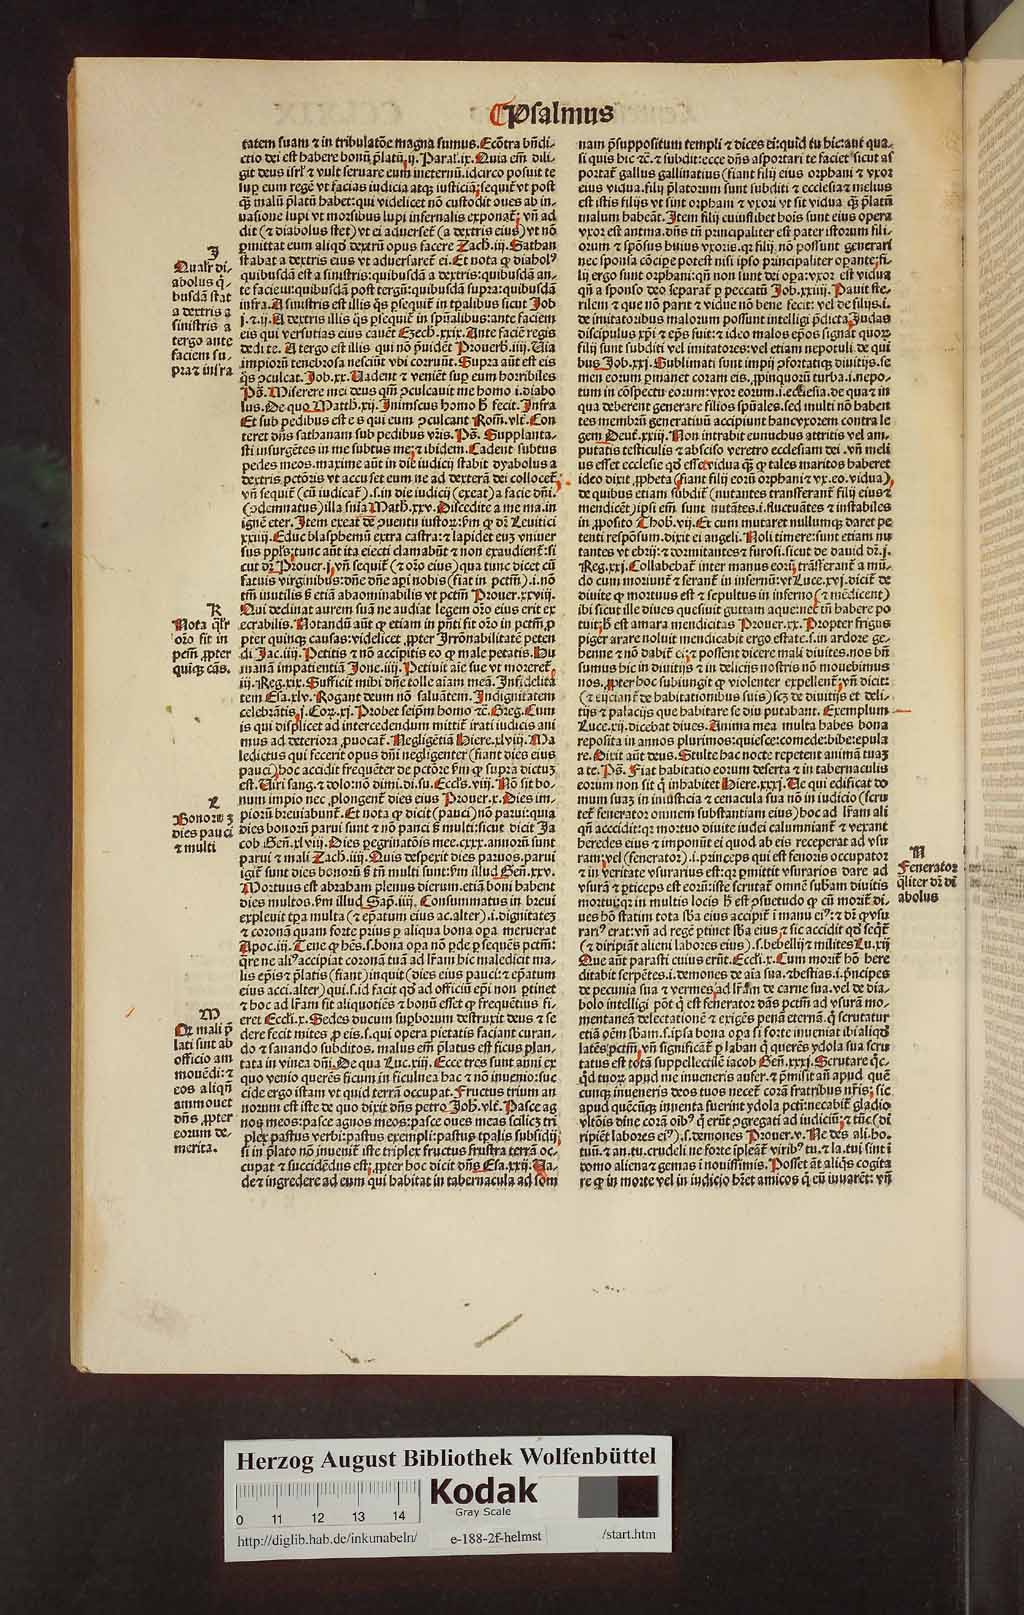 Psalmus
tatem suam ⁊ in tribulatōe magna sumus. Ecōtra bn̄di-
ctio dei est habere bonū p̄latū. ij. Paral'. ix. Quia em̄ dili-
git deus isrl' ⁊ vult seruare eum ineternū. idcirco posuit te
sup eum regē vt facias iudicia atqʒ iusticiā; sequit᷑ vt post
malū p̄latū habet: qui videlicet nō custodit oues ab in-
uasione lupi vt morsibus lupi infernalis exponat᷑; vn̄ ad
dit (⁊ diabolus stet) vt ei aduerset᷑ (a dextris eius) vt nō
pmittat eum aliqd dextrū opus facere Zach. iij. Sathan
stabat a dextris eius vt aduersaret᷑ ei. Et nota ꝙ diabolꝰ
quibusdā est a sinistris: quibusdā a dextris: quibusdā an-
te faciem: quibusdā post tergū: quibusdā supra: quibusdā
infra. A sinistris est illis q̄s psequit᷑ in tpalibus sicut Job
j. ⁊. ij. A dextris illis q̄s psequit᷑ in spūalibus: ante faciem
eis qui versutias eius cauēt Ezech. xxix. Ante faciē regis
dedi te. A tergo est illis qui nō puidēt Prouerb. iiij. Uia
impiorū tenebrosa nesciūt vbi corruūt. Supra aūt est eis
q̄s ↄculcat. Job. xx. Uadent ⁊ veniēt sup eum horribiles
Ps̄. Miserere mei deus qm̄ ↄculcauit me homo i. diabo
lus. De quo Matth. xij. Inimicus homo h̄ fecit. Infra
Et sub pedibus est eis qui eum ↄculcant Rom̄. vlt. Con
teret dn̄s sathanam sub pedibus vr̄is. Ps̄. Supplanta-
sti insurgētes in me subtus me; ⁊ ibidem. Cadent subtus
pedes meos. maxime aūt in die iudicij stabit dyabolus a
dextris pctōris vt accuset eum ne ad dexterā dei collocet᷑;
vn̄ sequit᷑ (cū iudicat᷑) .s. in die iudicij (exeat) a facie dn̄i.
(ↄdemnatus) illa sn̄ia Matth. xxv. Discedite a me ma. in
ignē eter. Item exeat de ↄuentu iustoꝝ: fm ꝙ dr̄ Leuitici
xxiiij. Educ blasphemū extra castra: ⁊ lapidet euʒ vniuer
sus ppl's; tunc aūt ita eiecti clamabūt ⁊ non exaudient᷑: si
cut dr̄ Prouer. j. vn̄ sequit᷑ (⁊ oro eius) qua tunc dicet cū
fatuis virginibus: dn̄e dn̄e api nobis (fiat in pctm̄). i. nō
tm̄ inutilis s̄ etiā abaominabilis vt pctm̄ Prouer. xxviij.
Qui declinat aurem suā ne audiat legem oro eius erit ex
ecrabilis. Notandū aūt ꝙ etiam in pn̄ti fit oro in pctm̄ p
pter quinqʒ causas: videlicet ppter Irrōnabilitatē peten
di Jac. iiij. Petitis ⁊ nō accipitis eo ꝙ male petatis. Hu
manā impatientiā Jone. iiij. Petiuit aīe sue vt moreret᷑.
iij. Reg. xix. Sufficit mihi dn̄e tolle aīam meā. Infidelita
tem Esa. xlv. Rogant deum nō saluātem. Indignitatem
celebrātis. j. Cor. xj. Probet seipm̄ homo ⁊c̄. Greg. Cum
is qui displicet ad intercedendum mittit᷑ irati iudicis ani
mus ad deteriora puocat᷑. Negligētia Hiere. xlviij. Ma
ledictus qui fecerit opus dn̄i negligenter (fiant dies eius
pauci) hoc accidit frequēter de pctōre fm ꝙ supra dictuʒ
est. Uiri sang. ⁊ dolo: nō dimi. di. su. Eccl's. viij. Nō sit bo-
num impio nec plongent᷑ dies eius Prouer. x. Dies im-
piorū breuiabunt᷑. Et nota ꝙ dicit (pauci) nō parui: quia
dies bonorū parui sunt ⁊ nō panci s̄ multi: sicut dicit Ja
cob Gen̄. xlviij. Dies pegrinatōis mee. cxxx. annorū sunt
parui ⁊ mali Zach. iiij. Quis despexit dies paruos. parui
igit᷑ sunt dies bonorū s̄ tn̄ multi sunt: fm illud Gen̄. xxv.
Mortuus est abraham plenus dierum. etiā boni habent
dies multos. fm illud Sap. iiij. Consummatus in breui
expleuit tpa multa (⁊ ep̄atum eius ac. alter) .i. dignitateʒ
⁊ coronā quam forte prius p aliqua bona opa meruerat
Apoc. iij. Tene ꝙ hēs .s. bona opa nō pde p sequēs pctm̄:
q̄re ne aliꝰ accipiat coronā tuā ad lr̄am hic maledicit ma-
lis ep̄is ⁊ p̄latis (fiant) inquit (dies eius pauci: ⁊ ep̄atum
eius acci. alter) qui .s. id facit qd ad officiū ep̄i non ptinet
⁊ hoc ad lr̄am sit aliquotiēs ⁊ bonū esset ꝙ frequētius fi-
eret Eccl'i. x. Sedes ducum supborum destruxit deus ⁊ se
dere fecit mites p eis .s. qui opera pietatis faciant curan-
do ⁊ sanando subditos. malus em̄ p̄latus est ficus plan-
tata in vinea dn̄i. De qua Luc. xiij. Ecce tres sunt anni ex
quo venio querēs ficum in ficulnea hac ⁊ nō inuenio: suc
cide ergo istam vt quid terrā occupat. Fructus trium an
norum est iste de quo dixit dn̄s petro Joh. vlt. Pasce ag
nos meos: pasce agnos meos: pasce oues meas scilicʒ tri
plex pastus verbi: pastus exempli: pastus tpalis subsidij;
si in p̄lato nō inuenit᷑ iste triplex fructus frustra terrā oc-
cupat ⁊ succidēdus est; ppter hoc dicit dn̄s Esa. xxij. Ua-
de ⁊ ingredere ad eum qui habitat in tabernacula ad som
J
Qualr̄ di-
abolus q̄-
busdā stat
a dextris a
sinistris a
tergo ante
faciem su-
pra ⁊ infra
K
Nota ql'r
oro fit in
pctm̄ ppter
quiqʒ cās.
L
Bonoruʒ
dies pauci
⁊ multi
M
Qr mali p̄
lati sūt ab
officio am
mouēdi: ⁊
eos aliqn̄
ammouet
dn̄s ppter
eorum de-
merita.
nam p̄suppositum templi ⁊ dices ei: quid tu hic: aut qua-
si quis hic ⁊c̄. ⁊ subdit: ecce dn̄s asportari te faciet sicut as
portat᷑ gallus gallinatius (fiant filij eius orphani ⁊ vxor
eius vidua. filij p̄latorum sunt subditi ⁊ ecclesia ⁊ melius
est istis filijs vt sint orphani ⁊ vxori vt sit vidua p̄latū
malum habeāt. Item filij cuiuslibet hoīs sunt eius opera
vxor est anima. dn̄s tn̄ principaliter est pater istorum fili-
orum ⁊ sponsus huius vxoris. qr filij nō possunt generari
nec sponsa cōcipe potest nisi ipso principaliter opante; fi-
lij ergo sunt orphani: qn̄ non sunt dei opa: vxor est vidua
qn̄ a sponso deo separat᷑ p peccatū Job. xxiiij. Pauit ste-
rilem ⁊ que nō parit ⁊ vidue nō bene fecit: vel de filijs .i.
de imitatoribus malorum possunt intelligi p̄dicta Judas
discipulus xp̄i ⁊ ep̄s fuit: ⁊ ideo malos ep̄os signat quoꝝ
filij sunt subditi vel imitatores: vel etiam nepotuli de qui
bus Job. xxj. Sublimati sunt impij ↄfortatiqʒ diuitijs. se
men eorum pmanet coram eis. ppinquorū turba .i. nepo-
tum in cōspectu eorum: vxor eorum .i. ecclesia. de qua ⁊ in
qua deberent generare filios spūales. sed multi nō haben
tes membrū generatiuū accipiunt hanc vxorem contra le
gem Deut. xxiij. Non intrabit eunuchus attritis vel am-
putatis testiculis ⁊ absciso veretro ecclesiam dei. vn̄ meli
us esset ecclesie qd esset vidua ꝙ tales maritos haberet
ideo dixit ppheta (fiant filij eorū orphani ⁊ vx. eo. vidua)
de quibus etiam subdit᷑ (nutantes transferant᷑ filij eius ⁊
mendicēt) ipsi em̄ sunt nutātes .i. fluctuātes ⁊ instabiles
in pposito Thob. vij. Et cum mutaret nullumqʒ daret pe
tenti respōsum. dixit ei angeli. Noli timere: sunt etiam nu
tantes vt ebrij: ⁊ dormitantes ⁊ furosi. sicut de dauid dr̄. j.
Reg. xxj. Collabebat᷑ inter manus eorū; trāsferant᷑ a mū-
do cum moriunt᷑ ⁊ serant᷑ in infernū: vt Luce. xvj. dicit᷑ de
diuite ꝙ mortuus est ⁊ sepultus in inferno (⁊ mēdicent)
ibi sicut ille diues quesiuit guttam aque: nec tn̄ habere po
tuit; h̄ est amara mendicitas Prouer. xx. Propter frigus
piger arare noluit mendicabit ergo estate .s. in ardore ge-
henne ⁊ nō dabit᷑ ei; ⁊ possent dicere mali diuites. nos bn̄
sumus hic in diuitijs ⁊ in delicijs nostris nō mouebimus
nos. ppter hoc subiungit ꝙ violenter expellent᷑; vn̄ dicit:
(⁊ eijciant᷑ de habitationibus suis) scʒ de diuitijs et deli-
tijs ⁊ palacijs que habitare se diu putabant. Exemplum
Luce. xij. dicebat diues. Anima mea multa habes bona
reposita in annos plurimos: quiesce: comede: bibe: epula
re. Dixit aūt deus. Stulte hac nocte repetent animā tuaʒ
a te. Ps̄. Fiat habitatio eorum deserta ⁊ in tabernaculis
eorum non sit q̄ inhabitet Hiere. xxxj. Ue qui edificat do
mum suaʒ in iniusticia ⁊ cenacula sua nō in iudicio (scru
tet᷑ fenerator omnem substantiam eius) hoc ad lr̄am ali
qn̄ accidit: qr mortuo diuite iudei calumniant᷑ ⁊ vexant
heredes eius ⁊ imponūt ei quod ab eis receperat ad vsu
ram; vel (fenerator) .i. princeps qui est fenoris occupator
⁊ in veritate vsurarius est: qr pmittit vsurarios dare ad
vsurā ⁊ pticeps est eorū: iste scrutat᷑ omnē sb̄am diuitis
mortui: qr in multis locis h̄ est ↄsuetudo ꝙ cū morit᷑ di-
ues hō statim tota sb̄a eius accipit᷑ i manu eiꝰ: ⁊ dr̄ ꝙ vsu
rariꝰ erat: vn̄ ad regē ptinet sb̄a eius; ⁊ sic accidit qd seqt᷑
(⁊ diripiāt alieni labores eius) .s. bebellij ⁊ milites Lu. xij
Que aūt parasti cuius erūt. Eccl'i. x. Cum morit᷑ hō here
ditabit serpētes .i. demones de aīa sua. ⁊ bestias .i. p̄ncipes
de pecunia sua ⁊ vermes; ad lr̄am de carne sua. vel de dia-
bolo intelligi pōt q̄ est fenerator dās pctm̄ ad vsurā mo-
mentaneā delectationē ⁊ exigēs penā eternā. q̄ scrutatur
etiā oēm sb̄am .s. ipsa bona opa si forte inueniat ibi aliqd
latēs pctm̄; vn̄ significat᷑ p laban q̄ querēs ydola sua scru
tatus est totā suppellectilē iacob Gen̄. xxxj. Scrutare q̄c-
qd tuoꝝ apud me inueneris aufer. ⁊ p̄misit an̄ apud quē
cunqʒ inueneris deos tuos necet᷑ corā fratribus nr̄is; sic
apud quēcūqʒ inuenta fuerint ydola pctī: necabit᷑ gladio
vltōis diīne corā oībꝰ q̄ erūt ↄgregati ad iudiciū; ⁊ tūc (di
ripiēt labores eiꝰ) .s. demones Prouer. v. Ne des ali. ho-
tuū. ⁊ an. tu. crudeli ne forte ipleāt᷑ viribꝰ tu. ⁊ la. tui sint i
domo aliena ⁊ gemas i nouissimis. Posset āt aliqs cogita
re ꝙ in morte vel in iudicio hr̄et amicos q̄ eū iuuarēt: vn̄
N
Fenerator
q̄liter dr̄ di
abolus
Herzog August Bibliothek Wolfenbüttel
0 11 12 13 14
Kodak
Gray Scale
http://diglib.hab.de/inkunabeln/ e-188-2f-helmst /start.htm